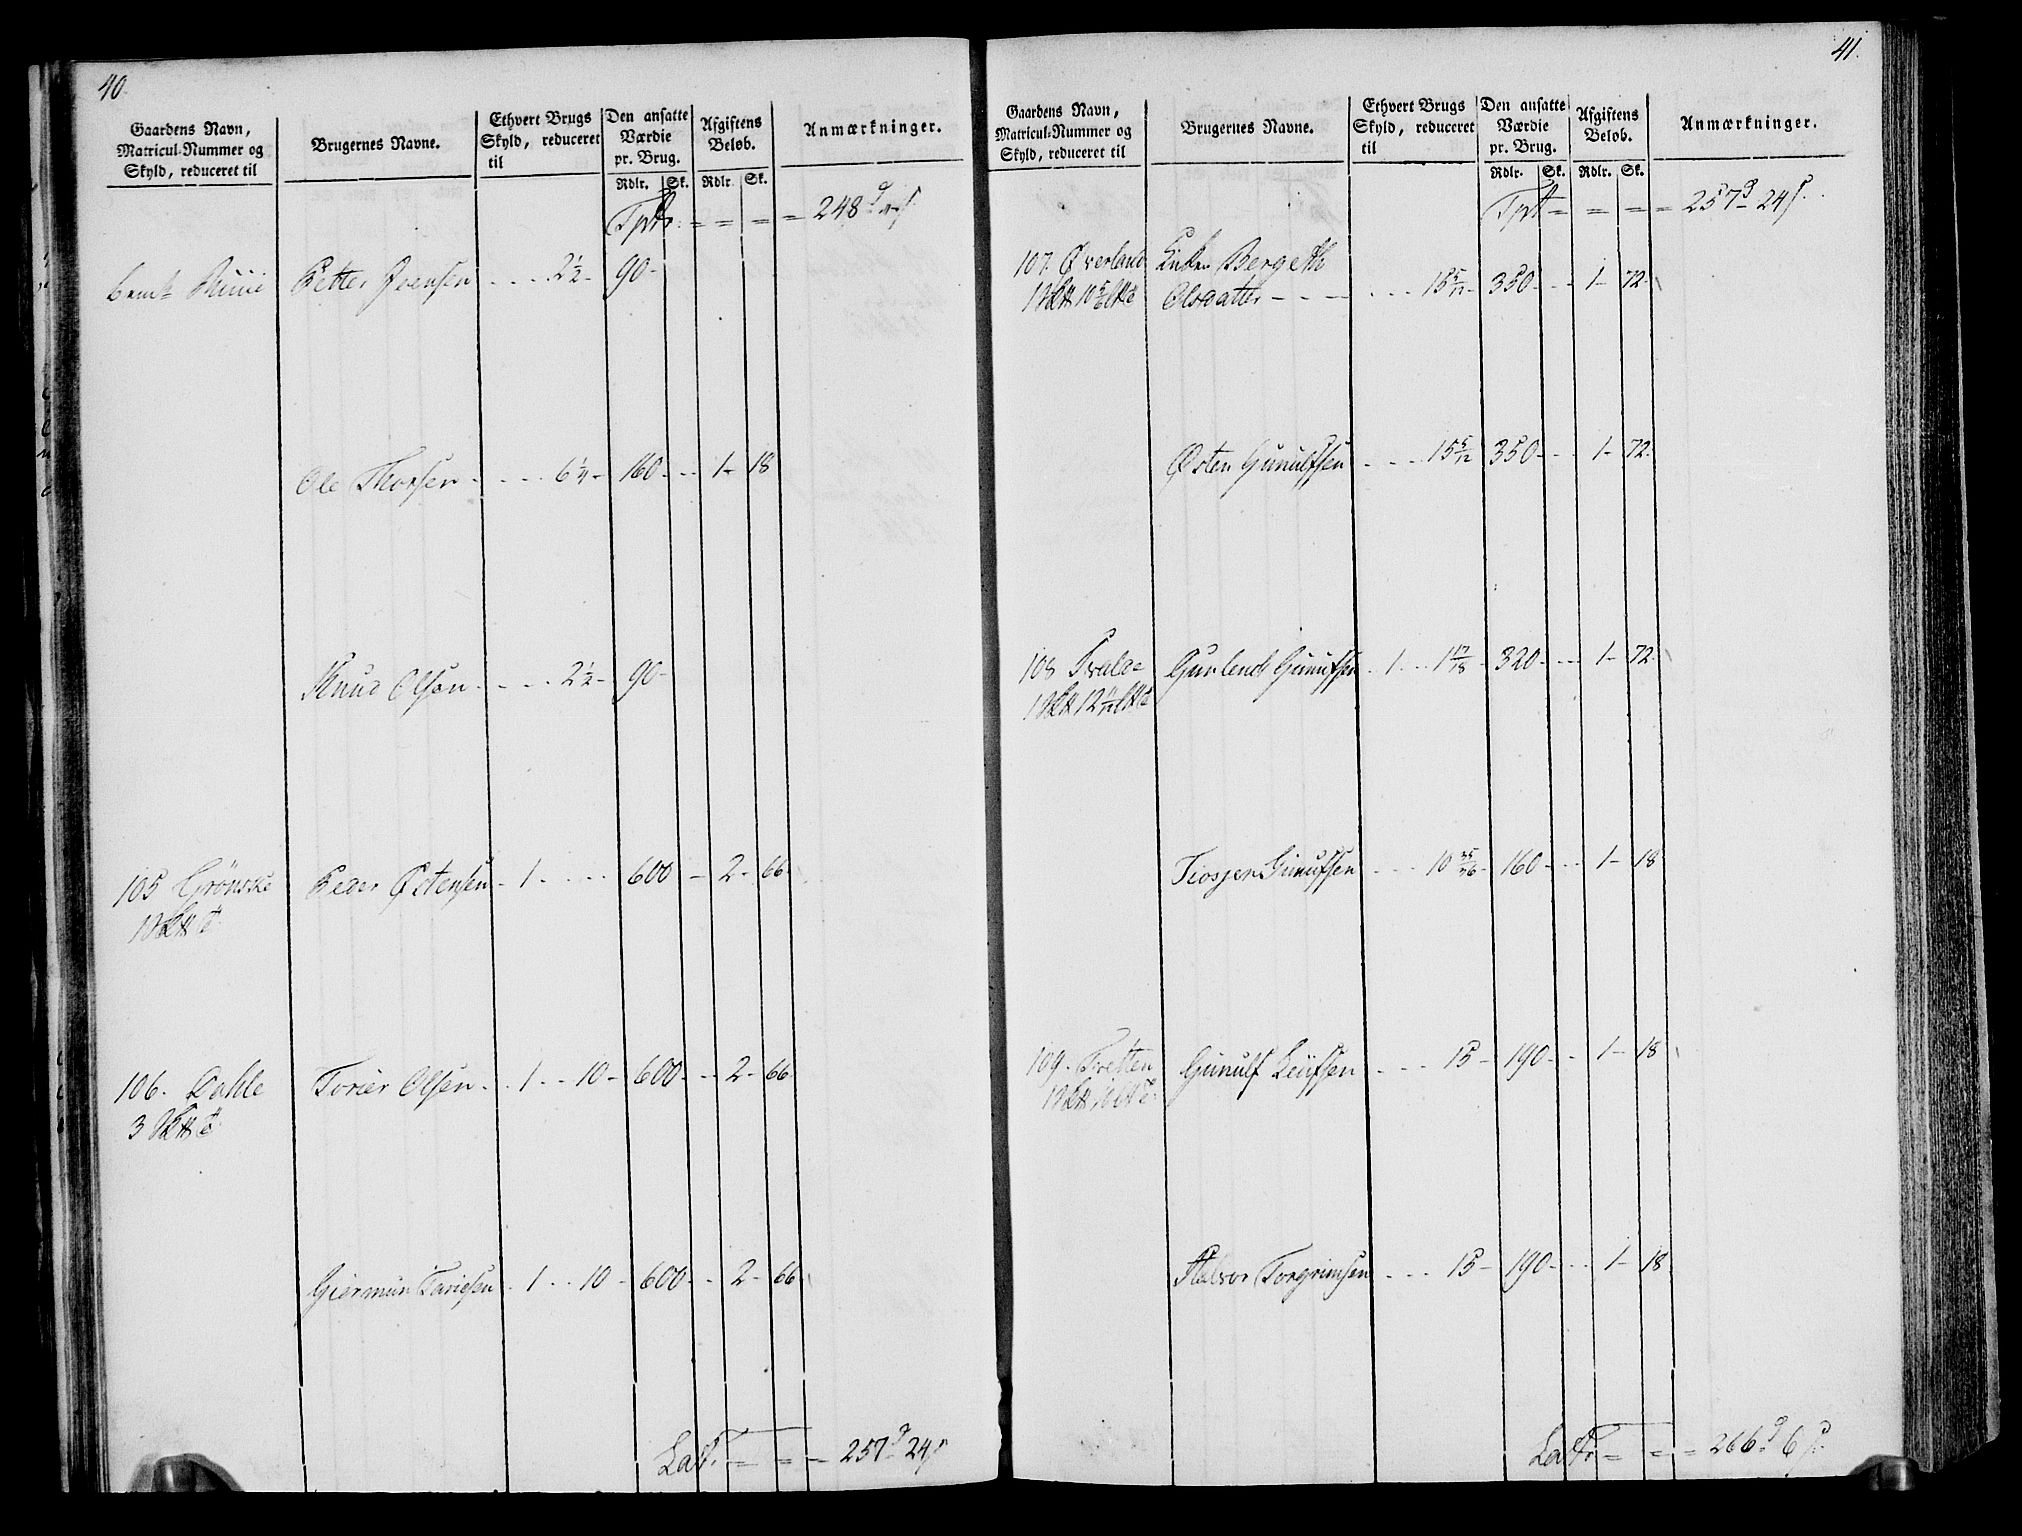 40.
Gaardens Navn,
Matricul-Nummer og
Skyld, reduceret til
Brugernes Navne.
Ethvert Brugs
Skyld, reduceret
til
Den ansatte
Værdie
pr. Brug.
Rdlr. Sk.
Afgiftens
Beløb.
Rdlr. Sk.
Anmærkninger.
Tptr. = = = = 248
Petter Evensen - - - 2 1/2 - 90 -
Ole Thorsen - - - - 6 1/4 - 160 - - - 1 - 18
Knud Olsen - - - - 2 1/2 - 90 -
105 Grønske Peder Østensen - 1 - - - - 600 - 2 - 66
106. Dahle Torier Olsen - - 1 - - 10 - 600 - - 2 - 66
3
Giermun Tariesen - 1 - - 10 - 600 - - 2 - 66
Latr. = = = 257 24
41.
Gaardens Navn,
Matricul-Nummer og
Skyld, reduceret til
Brugernes Navne.
Ethvert Brugs
Skyld, reduceret
til
Den ansatte
Værdie
pr. Brug.
Rdlr. Sk.
Afgiftens
Beløb.
Rdlr. Sk.
Anmærkninger.
Tpt = = = = 257 24
107. Øverland Enken Bergeth
Olsdatter - - - - - - - 15 5/12 - 350 - - 1 - 72
Østen Gunulfsen - - - 15 5/12 350 - - - 1 - 72
108 Gunlend Gunufsen - 1 - - 1 17/18 - 320 - - - 1 - 72
Gunufsen - - - 10 35/36 - 160 - - - 1 - 18
109. Tvetten Gunulf Leufsen - - - - 15 - 190 - - 1 - 18
Halvor Torgrimsen - - - 15 - 190 - - - 1 - 18
Latr = = = 266 6